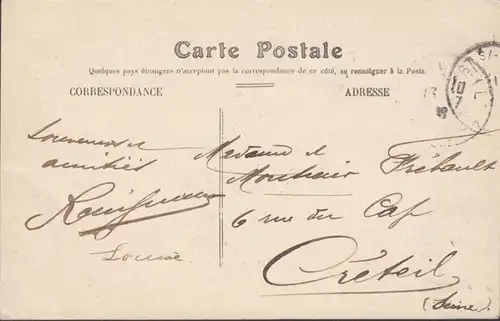 Carte Postale
Quelques pays étrangers n'acceptant pas la correspondance de ce côté, se renseigner à la Poste.
CORRESPONDANCE
ADRESSE
Souvenirs et
amitiés
Louise
Madame &
Monsieur Frébault
6 rue du Cap
Créteil
(Seine).